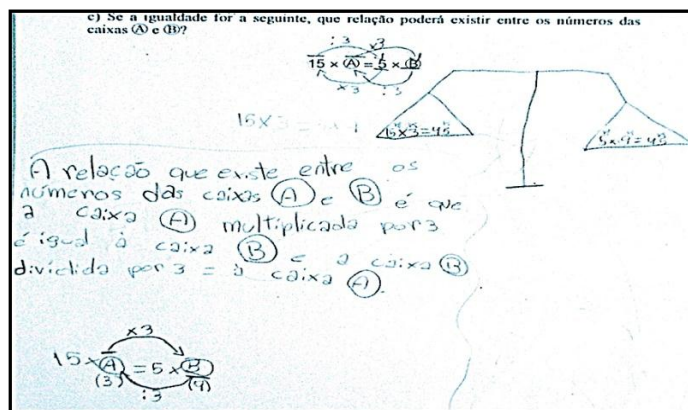 c) Se a igualdade for a seguinte, que relação poderá existir entre os números das
caixas Ⓐ e Ⓑ?
:3 x3
15 x Ⓐ = 5 x Ⓑ
x3 :3
15x3
15x3=45
5x9=45
A relação que existe entre os
números das caixas Ⓐ e Ⓑ é que
a caixa Ⓐ multiplicada por 3
é igual à caixa Ⓑ e a caixa Ⓑ
dividida por 3 = à caixa Ⓐ.
x3
15 x Ⓐ = 5 x Ⓑ
(3) (9)
:3